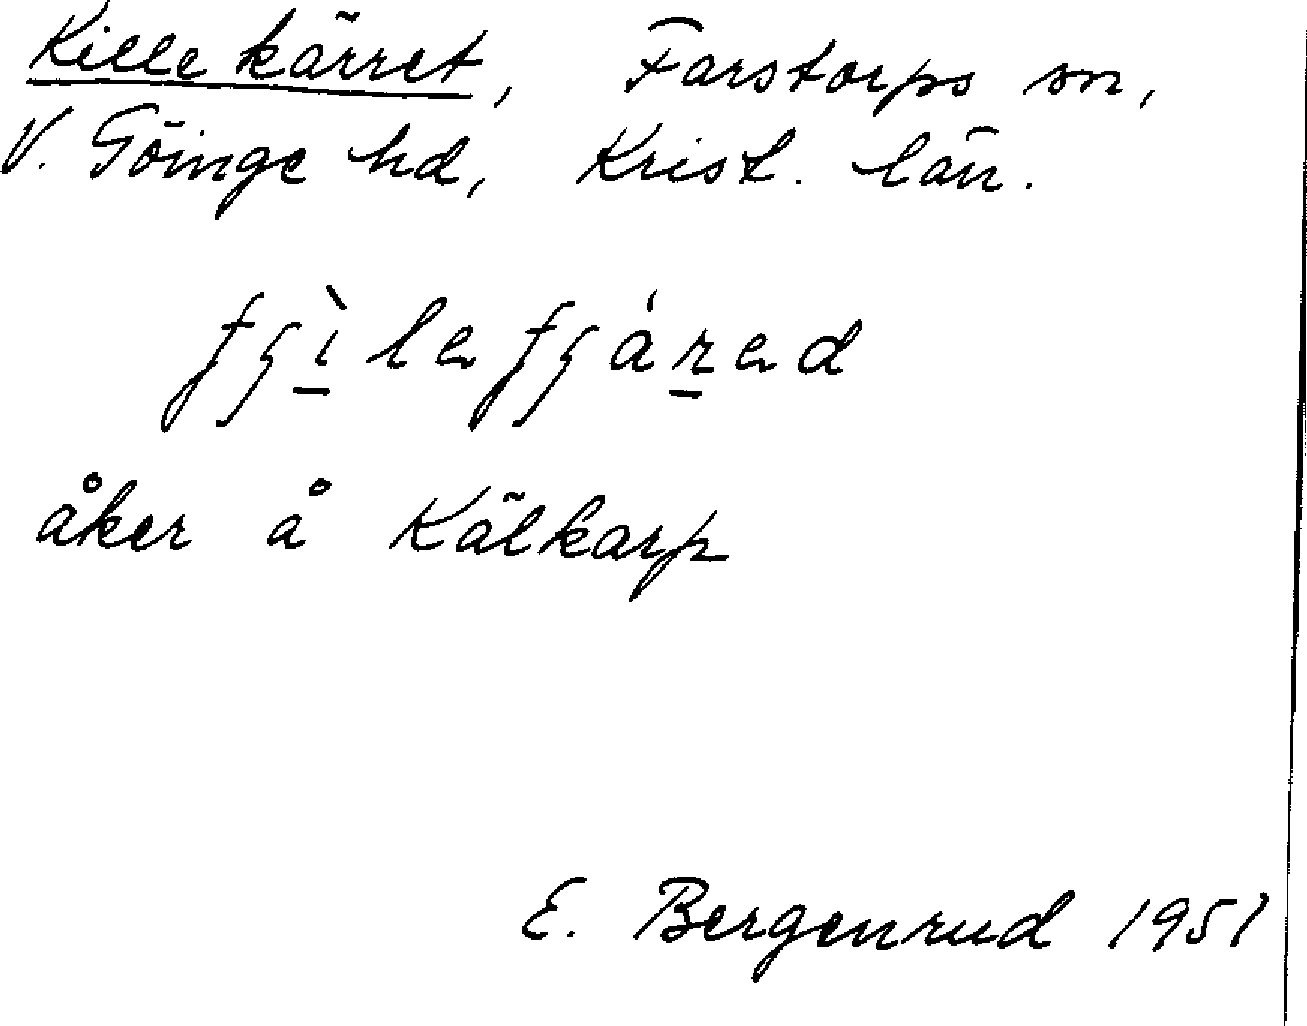 Killekärret, Farstorps sn,
V. Göinge hd, Krist. län.
fʃì̱lefʃáṟed
åker å Kälkarp
E. Bergenrud 1951